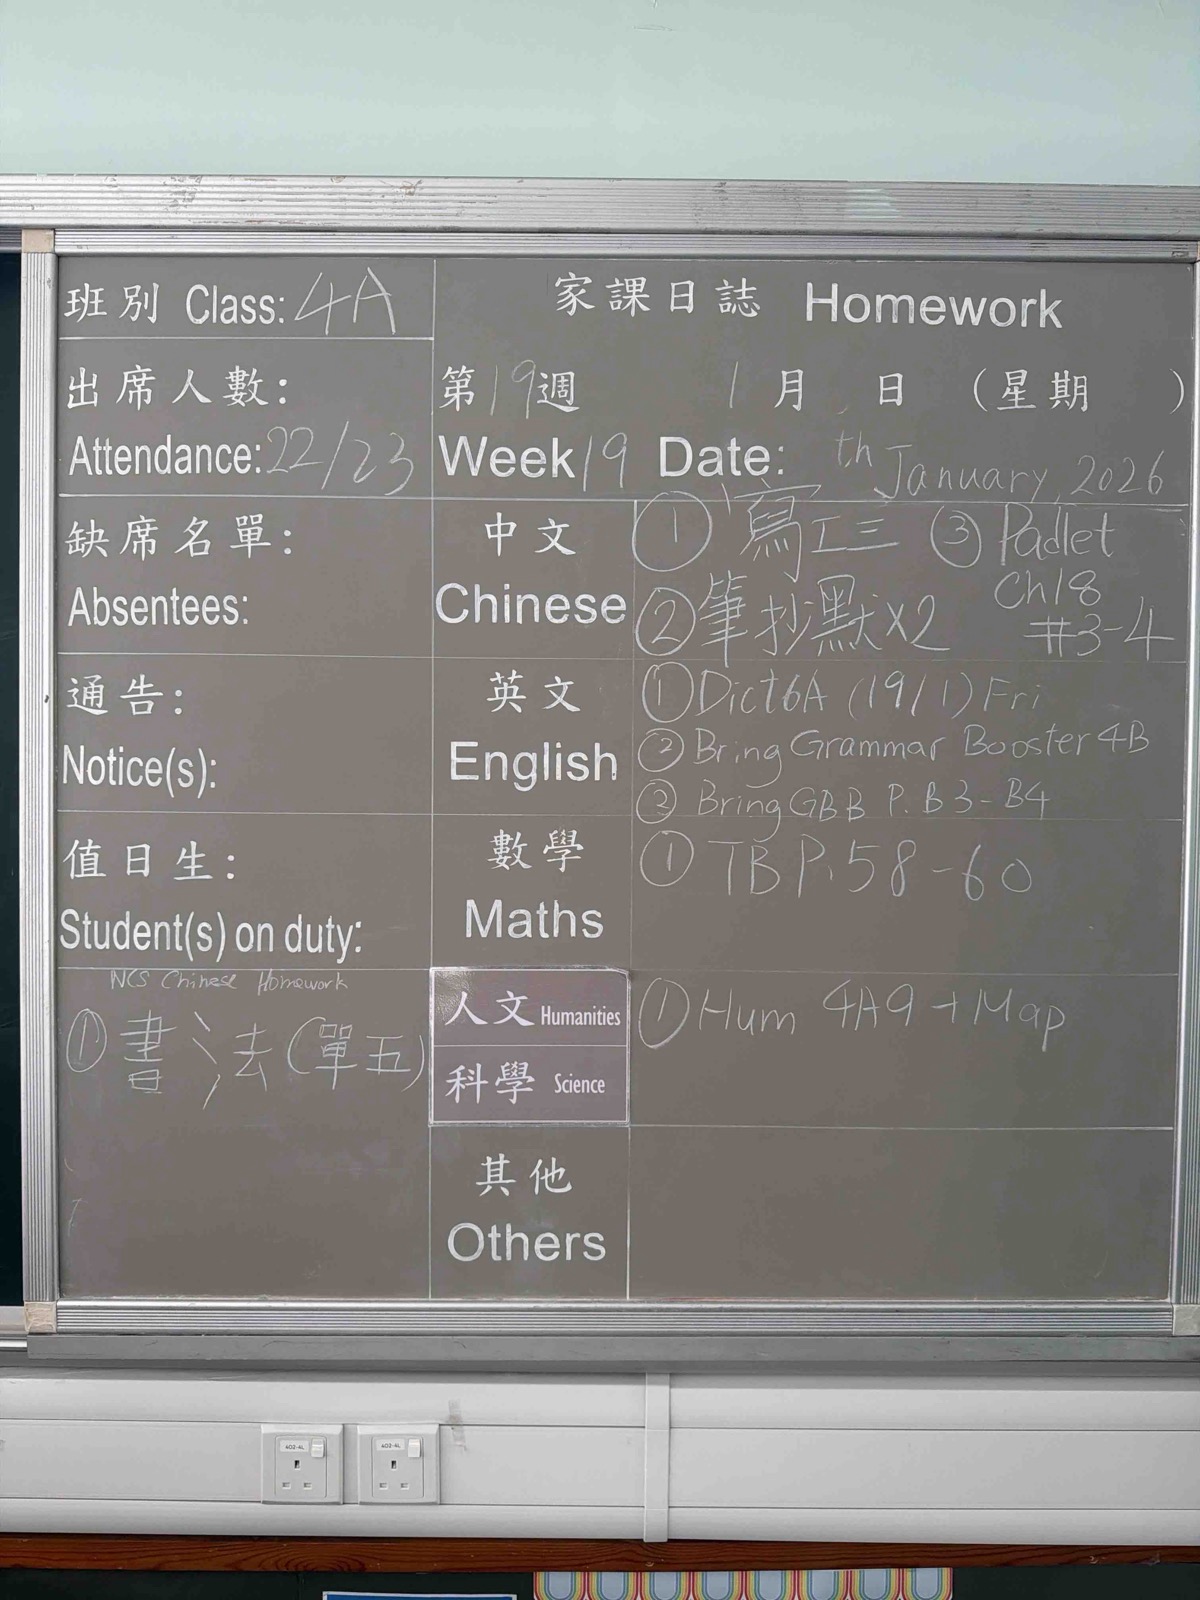 班別 Class: 4A
家課日誌 Homework
出席人數:
Attendance: 22/23
第19週 1月 日 (星期 )
Week 19 Date: th January, 2026
缺席名單:
Absentees:
中文
Chinese
① 寫工三 ③ Padlet
Ch18
② 筆抄默x2 #3-4
通告:
Notice(s):
英文
English
① Dict6A (19/1) Fri
② Bring Grammar Booster 4B
③ Bring GBB P. B3-B4
值日生:
Student(s) on duty:
數學
Maths
① TB P.58-60
NCS Chinese Homework
① 書法(單五)
人文 Humanities
科學 Science
① Hum 4A9 + Map
其他
Others
402-4L
402-4L